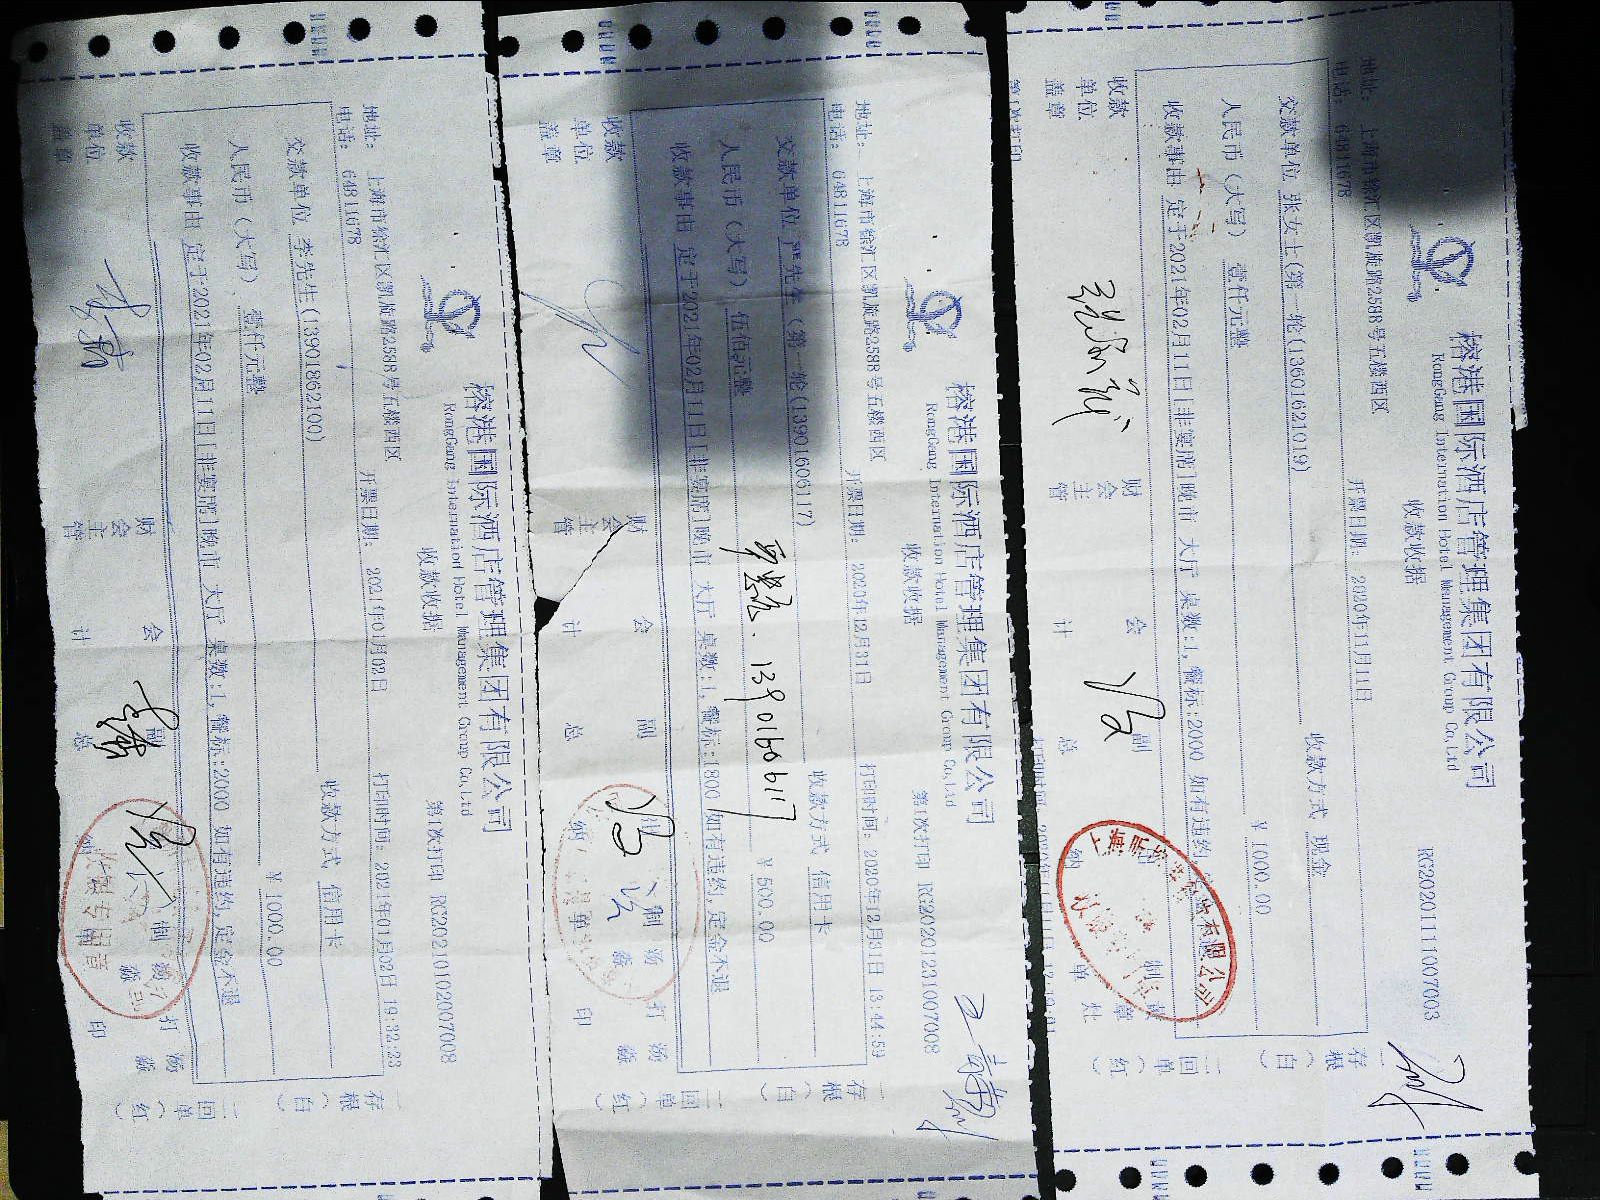 榕港国际酒店管理集团有限公司
RongGang International Hotel Management Group Co,Ltd
收款收据
RG20201111007003
地址: 上海市徐汇区凯旋路2588号五楼西区
电话: 64811678
开票日期: 2020年11月11日
交款单位 张女士(第一轮(13601621019)
收款方式 现金
人民币(大写) 壹仟元整
¥ 1000.00
收款事由 定于2021年02月11日[非宴席]晚市 大厅 桌数:1, 餐标:2000 如有违约,
收款单位盖章
财会主管
会计
副总
制单
一存根(白)
二回单(红)
榕港国际酒店管理集团有限公司
RongGang International Hotel Management Group Co,Ltd
收款收据
第1次打印 RG20201231007008
地址: 上海市徐汇区凯旋路2588号五楼西区
电话: 64811678
开票日期: 2020年12月31日
打印时间: 2020年12月31日 13:44:59
交款单位 严先生(第一轮(13901606117)
收款方式 信用卡
13901606117
人民币(大写) 伍佰元整
¥ 500.00
收款事由 定于2021年02月11日[非宴席]晚市 大厅 桌数:1, 餐标:1800 如有违约,定金不退
收款单位盖章
财会主管
会计
副总
打印
一存根(白)
二回单(红)
榕港国际酒店管理集团有限公司
RongGang International Hotel Management Group Co,Ltd
收款收据
第1次打印 RG20210102007008
地址: 上海市徐汇区凯旋路2588号五楼西区
电话: 64811678
开票日期: 2021年01月02日
打印时间: 2021年01月02日 19:32:23
交款单位 李先生(13901862100)
收款方式 信用卡
人民币(大写) 壹仟元整
¥ 1000.00
收款事由 定于2021年02月11日[非宴席]晚市 大厅 桌数:1, 餐标:2000 如有违约,定金不退
收款单位盖章
财会主管
会计
副总
打印
一存根(白)
二回单(红)